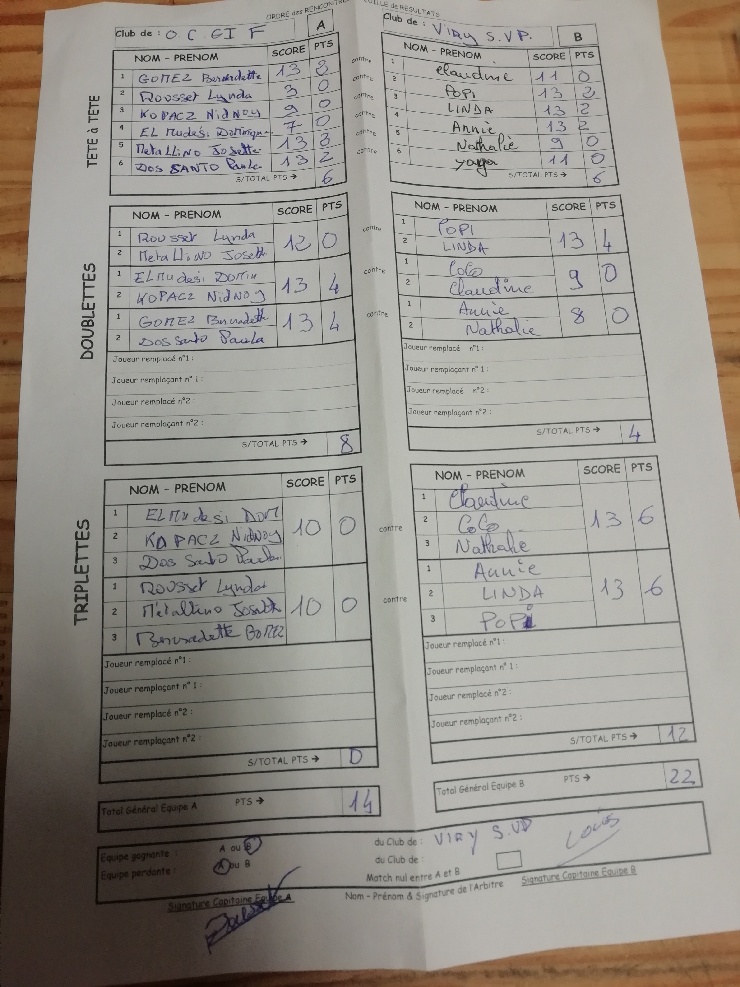 ORDRE des RENCONTRES FEUILLE de RESULTATS
Club de : O C GIF A
NOM - PRENOM SCORE PTS
1 GOMEZ Bernadette 13 2
2 Rousset Lynda 3 0
3 KOPACZ NidNOY 9 0
4 EL Mudesi Dominique 7 0
5 Metallino Josette 13 2
6 Dos SANTO Paula 13 2
S/TOTAL PTS → 6
TETE à TETE
contre
contre
contre
contre
contre
contre
Club de : VIRY S.VP. B
NOM - PRENOM SCORE PTS
1 Claudine 11 0
2 Popi 13 2
3 LINDA 13 2
4 Annie 13 2
5 Nathalie 9 0
6 yaya 11 0
S/TOTAL PTS → 6
DOUBLETTES
NOM - PRENOM SCORE PTS
1 Rousset Lynda
2 Metallino Josett 12 0
1 EL Mudesi Domin
2 KOPACZ NidNOY 13 4
1 GOMEZ Bernadette
2 Dos Santo Paula 13 4
Joueur remplacé n°1 :
Joueur remplaçant n° 1 :
Joueur remplacé n°2 :
Joueur remplaçant n°2 :
S/TOTAL PTS → 8
contre
contre
contre
NOM - PRENOM SCORE PTS
1 POPI
2 LINDA 13 4
1 CoCo
2 Claudine 9 0
1 Annie
2 Nathalie 8 0
Joueur remplacé n°1 :
Joueur remplaçant n°1 :
Joueur remplacé n°2 :
Joueur remplaçant n°2 :
S/TOTAL PTS → 4
TRIPLETTES
NOM - PRENOM SCORE PTS
1 EL Mudesi DOM
2 KOPACZ NidNOY 10 0
3 Dos Santo Paula
1 Rousset Lynda
2 Metallino Josett 10 0
3 Bernadette GOMEZ
Joueur remplacé n°1 :
Joueur remplaçant n° 1 :
Joueur remplacé n°2 :
Joueur remplaçant n°2 :
S/TOTAL PTS → 0
contre
contre
NOM - PRENOM SCORE PTS
1 Claudine
2 CoCo 13 6
3 Nathalie
1 Annie
2 LINDA 13 6
3 POPI
Joueur remplacé n°1 :
Joueur remplaçant n°1 :
Joueur remplacé n°2 :
Joueur remplaçant n°2 :
S/TOTAL PTS → 12
Total Général Equipe A PTS → 14
Total Général Equipe B PTS → 22
Equipe gagnante : A ou B du Club de : VIRY S.VP
Equipe perdante : A ou B du Club de :
Match nul entre A et B
Signature Capitaine Equipe A
Nom - Prénom & Signature de l'Arbitre
Signature Capitaine Equipe B